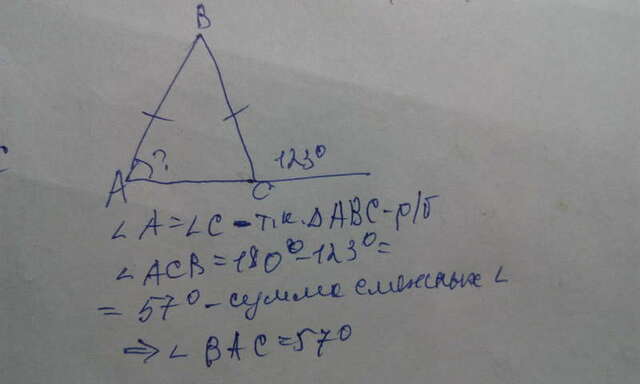 B
A ? C 123°
∠A=∠C - т.к. ΔABC - р/б
∠ACB=180°-123°=
= 57° - сумма смежных ∠
⇒ ∠BAC=57°